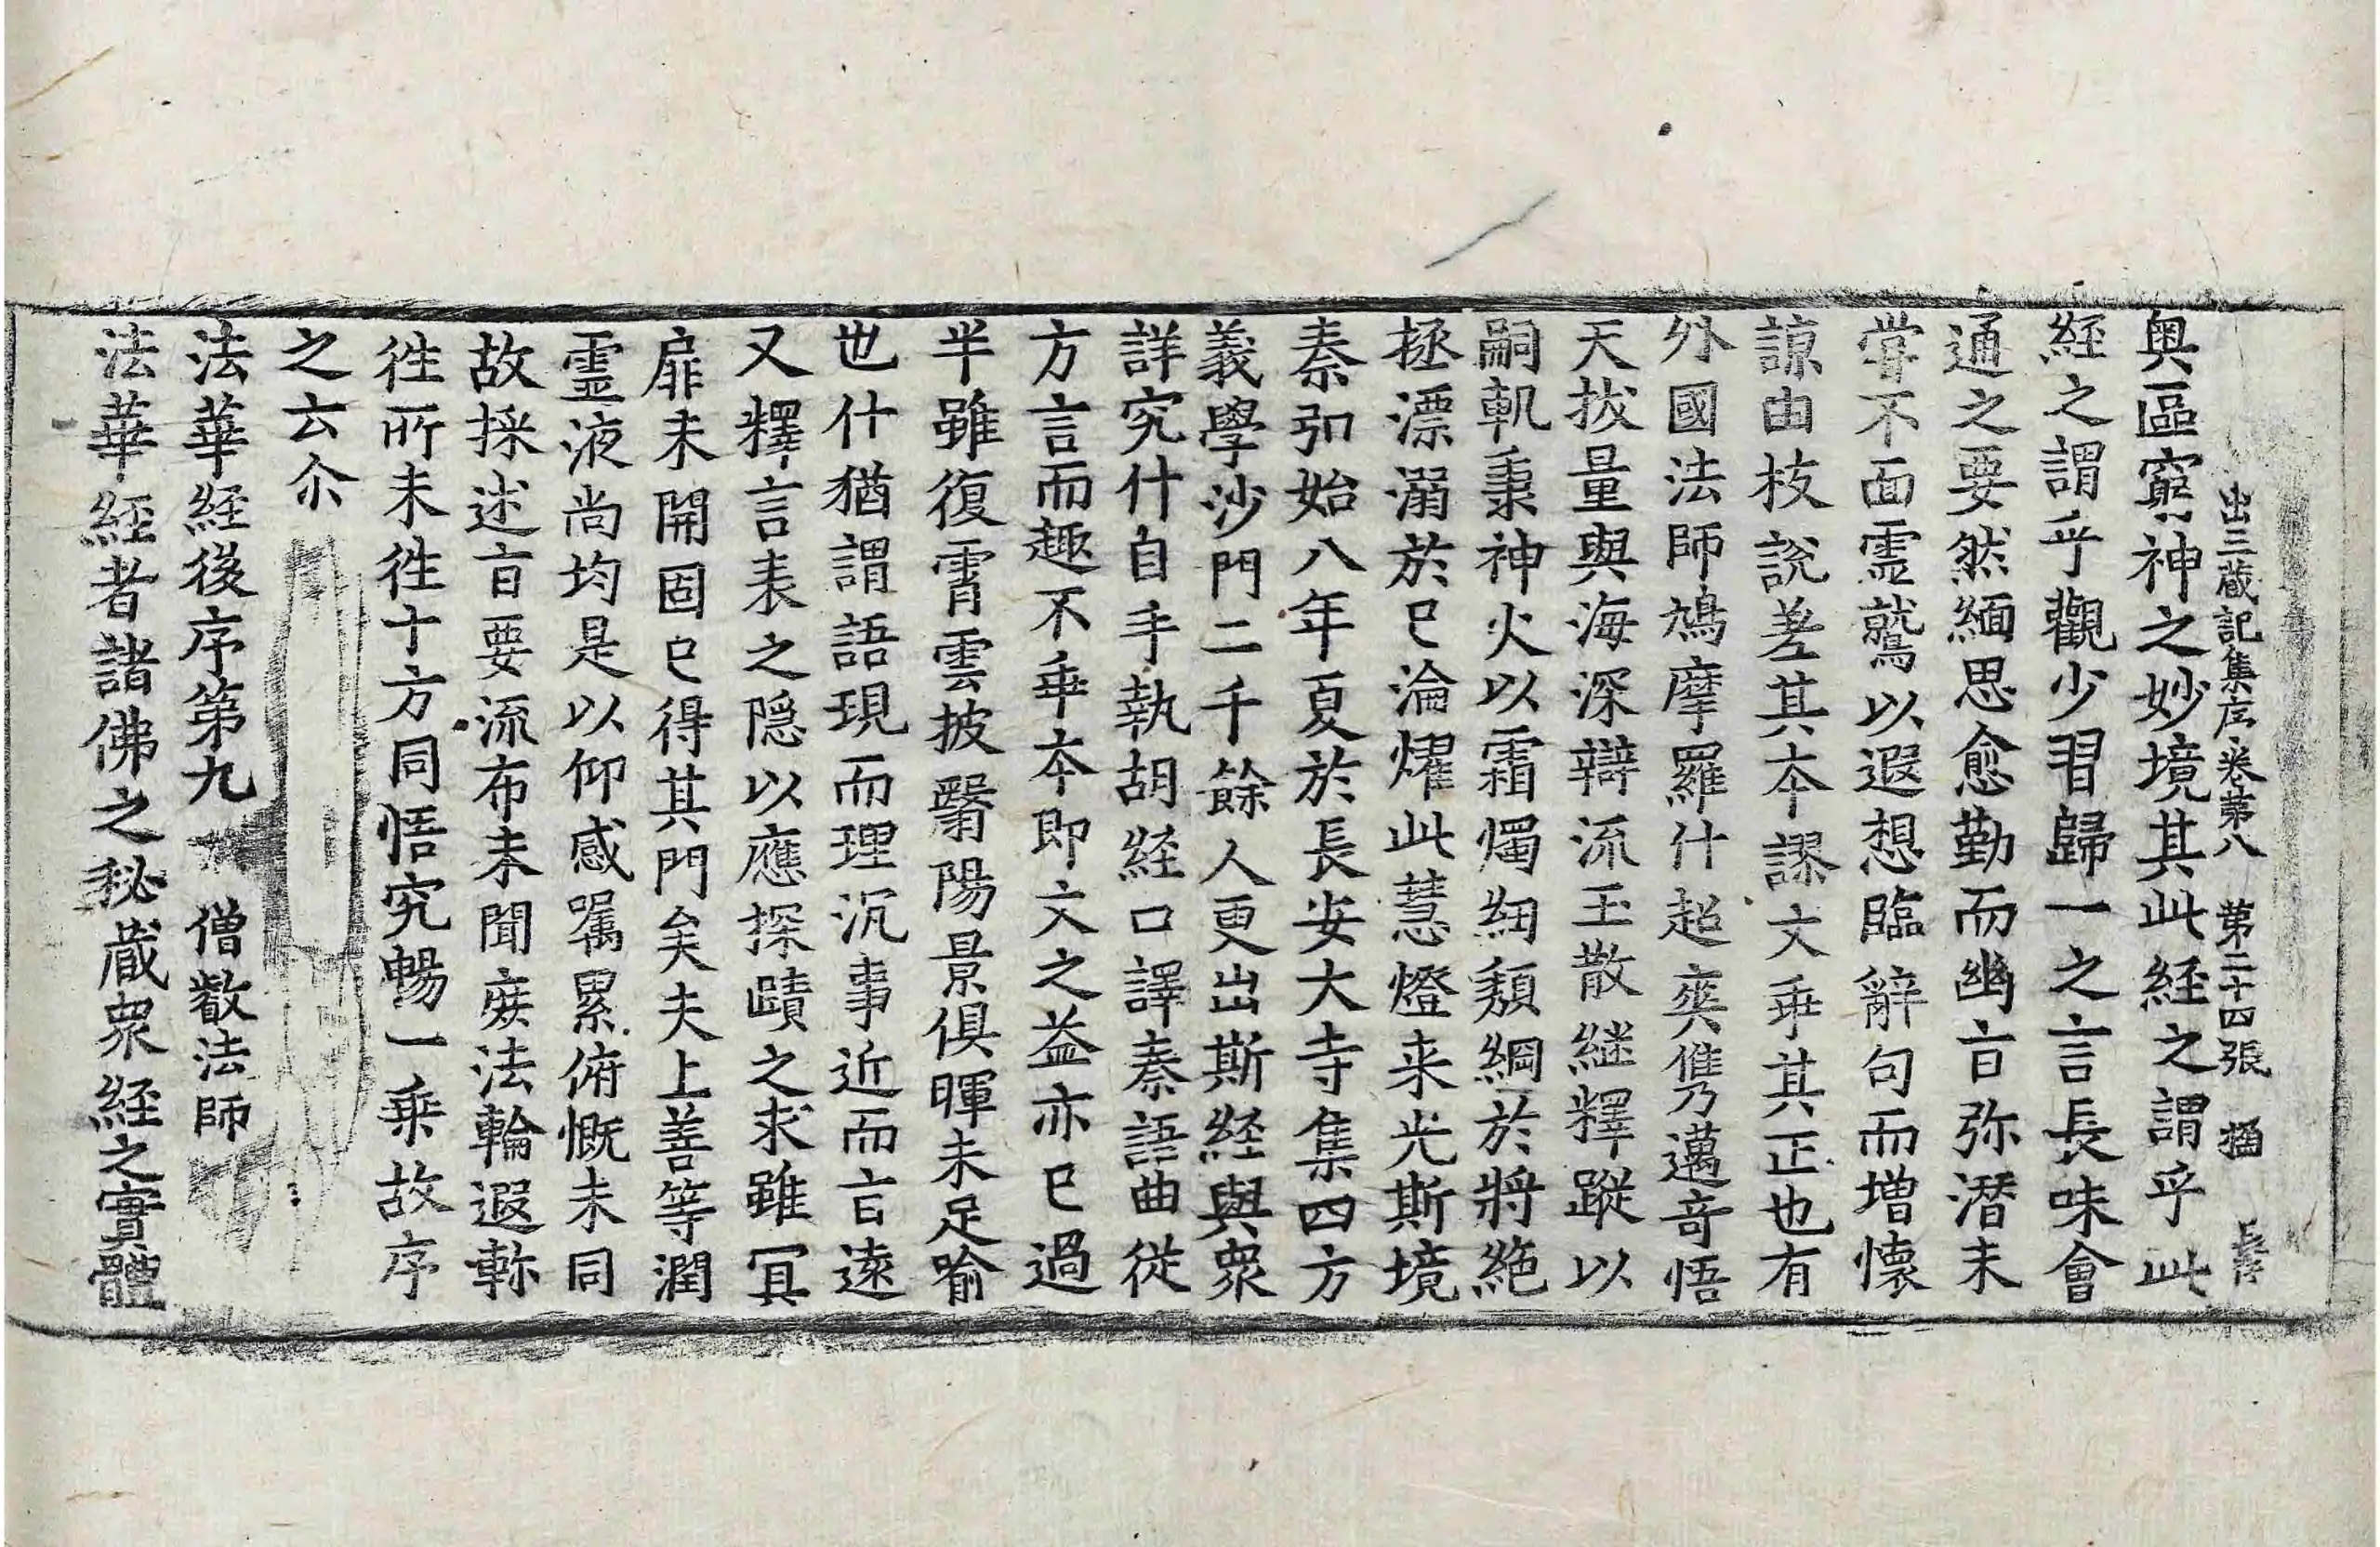 出三藏記集序卷第八　第二十四張　𭑹
奧區窮神之妙境其此経之謂乎此
経之謂乎觀少習歸一之言長味會
通之要然緬思愈勤而幽㫖弥潜未
甞不面霊鷲以遐想臨辭句而増懷
諒由枝說差其夲謬文乖其正也有
外國法師鳩摩羅什超爽儁邁竒悟
天拔量與海深辯流玉散継釋蹤以
嗣軌秉神火以霜燭紉頽綱於將絶
拯漂溺於已淪燿此慧燈来光斯境
秦弘始八年夏於長安大寺集四方
義學沙門二千餘人更出斯経與衆
詳究什自手執胡経口譯秦語曲從
方言而趣不乖夲即文之益亦已過
半雖復霄雲披翳陽景俱暉未足喻
也什猶謂語現而理沉事近而㫖遠
又釋言表之隠以應探賾之求雖冥
扉未開固已得其門矣夫上善等潤
霊液尚均是以仰感囑累俯慨未同
故採述㫖要流布未聞庻法輪遐軫
徃所未徃十方同悟究暢一乗故序
之云尒
法華経後序第九　僧叡法師
法華経者諸佛之秘蔵衆経之實體